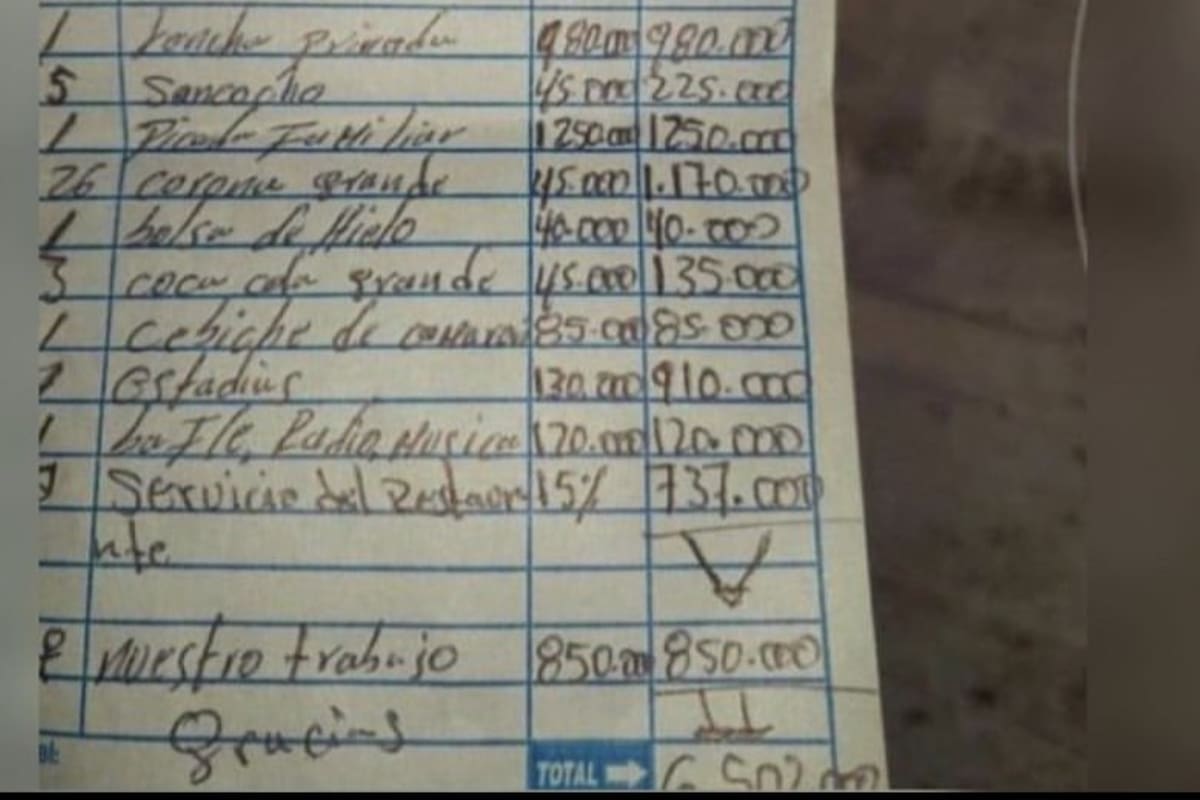 1 Lancha privada 980.000 980.000
5 Sancocho 45.000 225.000
1 Picada Familiar 1250.000 1250.000
26 corona grande 45.000 1.170.000
1 bolsa de Hielo 40.000 40.000
3 coca cola grande 45.000 135.000
1 cebiche de camaron 85.000 85.000
7 estadias 130.000 910.000
1 bafle, Radio, Musica 120.000 120.000
Servicio del Restaur 15% 737.000
nte
nuestro trabajo 850.000 850.000
Gracias
TOTAL 6.502.000